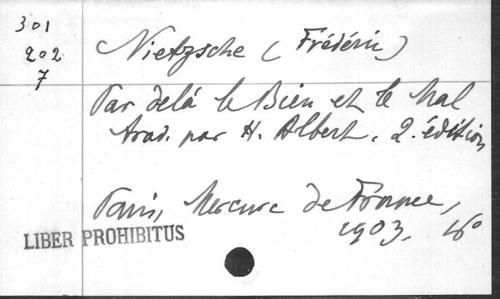 301
202
7
Nietzsche (Frédéric)
Par delà le Bien et le Mal
trad. par H. Albert. 2. édition
Paris, Mercure de France,
1903. 16°
LIBER PROHIBITUS